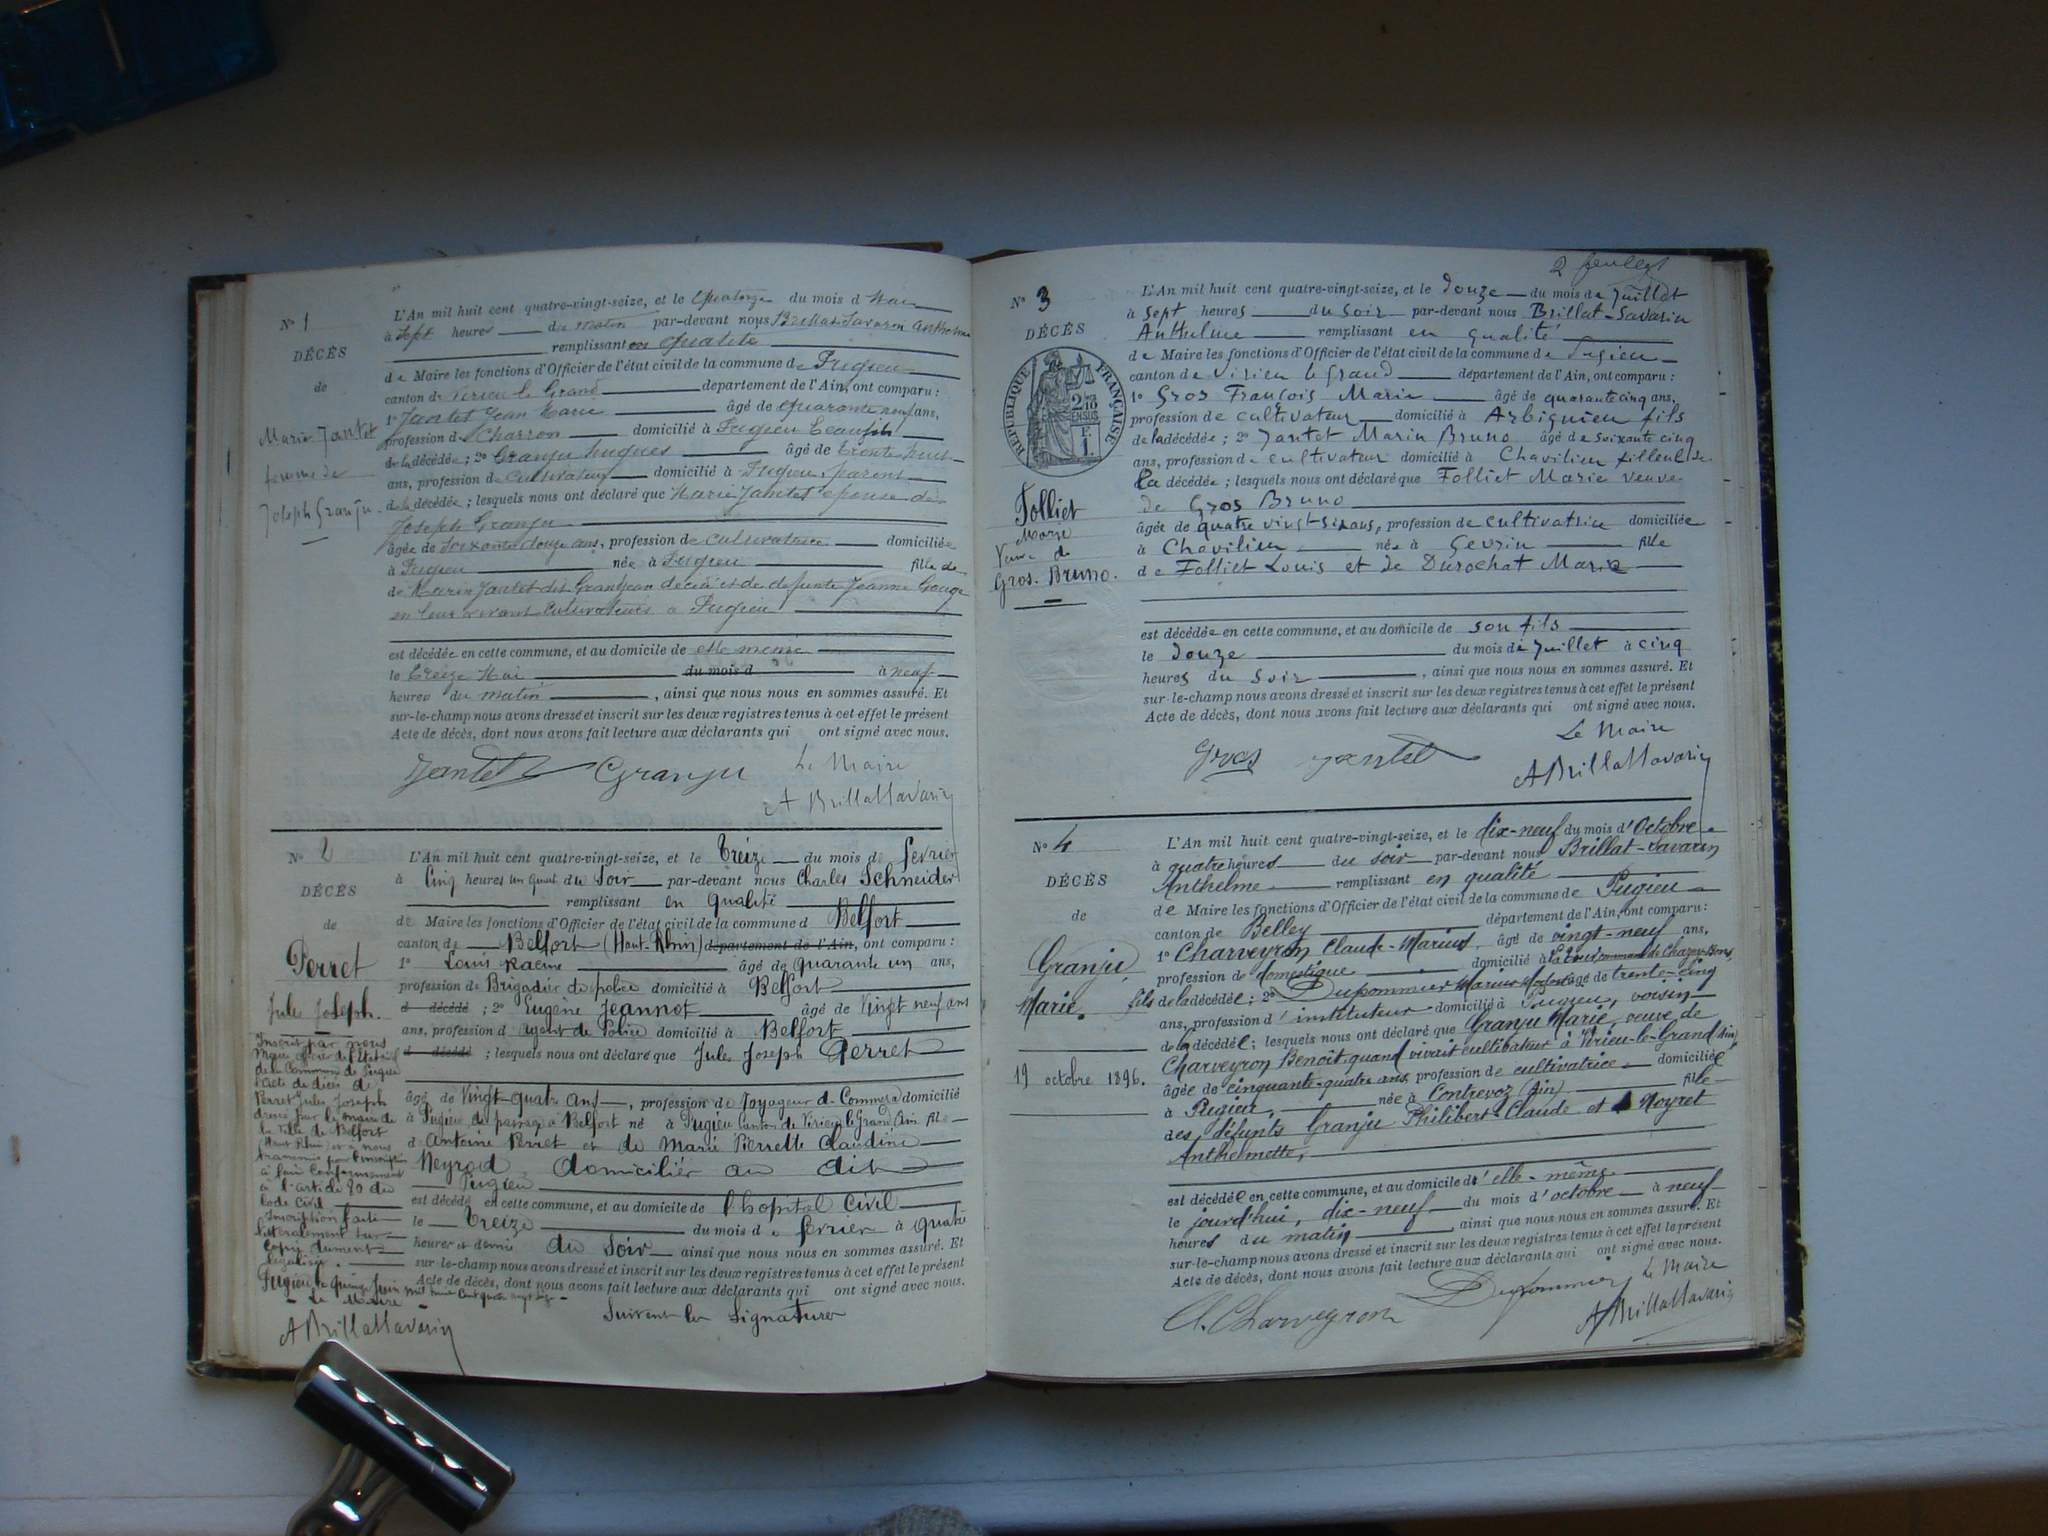 N° 1
DÉCÈS
de
Marie Jantet
femme de
Joseph Granju.
L'An mil huit cent quatre-vingt-seize, et le quatorze du mois d Mai
à sept heures du matin par-devant nous Brillat-Savarin Anthelme
remplissant en qualité
de Maire les fonctions d'Officier de l'état civil de la commune de Pugieu
canton de Virieu le Grand département de l'Ain, ont comparu :
1° Jantet Jean Marie âgé de quarante neuf ans,
profession de Charron domicilié à Pugieu beaufils
de la décédée ; 2° Granju Hugues âgé de trente huit
ans, profession de cultivateur domicilié à Pugieu, parent
de la décédée ; lesquels nous ont déclaré que Marie Jantet épouse de
Joseph Granju
âgée de soixante douze ans, profession de cultivatrice domiciliée
à Pugieu née à Pugieu fille de
de Marin Jantet dit Grandjean décédé et de defunte Jeanne Gouge
en leur vivant cultivateurs à Pugieu
est décédée en cette commune, et au domicile de elle même
le treize Mai du mois d à neuf
heures du matin , ainsi que nous nous en sommes assuré. Et
sur-le-champ nous avons dressé et inscrit sur les deux registres tenus à cet effet le présent
Acte de décès, dont nous avons fait lecture aux déclarants qui ont signé avec nous.
Jantet Granju Le Maire
A Brillat Savarin
N° 2
DÉCÈS
de
Perret
Jule Joseph.
Inscrit par nous
Maire officier de l'Etat civil
de la Commune de Pugieu
l'acte de décès de
Perret Jules Joseph
dressé par le maire de
la ville de Belfort
(Haut Rhin) et à nous
transmis pour l'inscription
à faire conformément
à l'article 80 du
Code Civil
Inscription faite
littéralement sur
copie dument
légalisée.
Pugieu, le quinze Juin mil huit cent quatre vingt seize
Le Maire
A Brillat Savarin
L'An mil huit cent quatre-vingt-seize, et le treize du mois de fevrier
à Cinq heures un quart du Soir par-devant nous Charles Schneider
remplissant en qualité
de Maire les fonctions d'Officier de l'état civil de la commune d Belfort
canton de Belfort (Haut-Rhin) département de l'Ain, ont comparu :
1° Louis Racine âgé de quarante un ans,
profession de Brigadier de police domicilié à Belfort
d décédé ; 2° Eugène Jeannot âgé de Vingt neuf ans
ans, profession d'agent de Police domicilié à Belfort
d décédé ; lesquels nous ont déclaré que Jule Joseph Perret
âgé de Vingt quatre ans, profession de Voyageur de Commerce domicilié
à Pugieu de passage à Belfort né à Pugieu canton de Virieu le Grand Ain fils
d'Antoine Perret et de Marie Pierrette Claudine
Neyroud domiciliés au dit
Pugieu
est décédé en cette commune, et au domicile de l'hopital Civil
le treize du mois de fevrier à quatre
heures et demie du Soir ainsi que nous nous en sommes assuré. Et
sur-le-champ nous avons dressé et inscrit sur les deux registres tenus à cet effet le présent
Acte de décès, dont nous avons fait lecture aux déclarants qui ont signé avec nous.
Suivent les signatures
2 feuillet
N° 3
DÉCÈS
RÉPUBLIQUE FRANÇAISE
2/10
EN SUS
F.
1.
Folliet
Marie
Veuve de
Gros. Bruno.
L'An mil huit cent quatre-vingt-seize, et le douze du mois de Juillet
à sept heures du soir par-devant nous Brillat-Savarin
Anthelme remplissant en qualité
de Maire les fonctions d'Officier de l'état civil de la commune de Pugieu
canton de Virieu le Grand département de l'Ain, ont comparu :
1° Gros François Marie âgé de quarante cinq ans,
profession de cultivateur domicilié à Arbignieu fils
de la décédée ; 2° Jantet Marin Bruno âgé de soixante cinq
ans, profession de cultivateur domicilié à Chavilieu filleul de
la décédée ; lesquels nous ont déclaré que Folliet Marie veuve
de Gros Bruno
âgée de quatre vingt-six ans, profession de cultivatrice domiciliée
à Chavilieu née à Gevrin fille
de Folliet Louis et de Durochat Marie
est décédée en cette commune, et au domicile de son fils
le douze du mois de Juillet à cinq
heures du soir , ainsi que nous nous en sommes assuré. Et
sur-le-champ nous avons dressé et inscrit sur les deux registres tenus à cet effet le présent
Acte de décès, dont nous avons fait lecture aux déclarants qui ont signé avec nous.
Le Maire
Gros Jantet A Brillat Savarin
N° 4
DÉCÈS
de
Granju
Marie.
19 octobre 1896.
L'An mil huit cent quatre-vingt-seize, et le dix-neuf du mois d'Octobre
à quatre heures du soir par-devant nous Brillat-Savarin
Anthelme remplissant en qualité
de Maire les fonctions d'Officier de l'état civil de la commune de Pugieu
canton de Belley département de l'Ain, ont comparu :
1° Charveyron Claude-Marius, âgé de vingt-neuf ans,
profession de domestique domicilié à commune de Chazey-Bons,
fils de la décédée ; 2° Dupommier Marius Modeste âgé de trente-cinq
ans, profession d'instituteur domicilié à Pugieu, voisin
de la décédée ; lesquels nous ont déclaré que Granju Marie, veuve de
Charveyron Benoit quand vivait cultivateur à Virieu-le-Grand (Ain)
âgée de cinquante-quatre ans, profession de cultivatrice domiciliée
à Pugieu, née à Contrevoz (Ain) fille
des défunts Granju Philibert-Claude et Moyret
Anthelmette,
est décédée en cette commune, et au domicile d'elle-même
le jourd'hui, dix-neuf du mois d'octobre à neuf
heures du matin , ainsi que nous nous en sommes assuré. Et
sur-le-champ nous avons dressé et inscrit sur les deux registres tenus à cet effet le présent
Acte de décès, dont nous avons fait lecture aux déclarants qui ont signé avec nous.
Cl. Charveyron Dupommier Le Maire
A Brillat Savarin